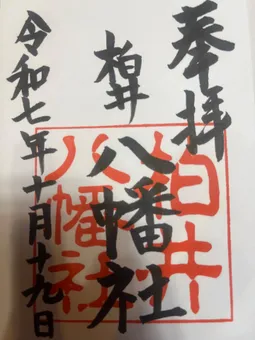 奉拝
柏井
八幡社
令和七年十月十九日
柏井
八幡社